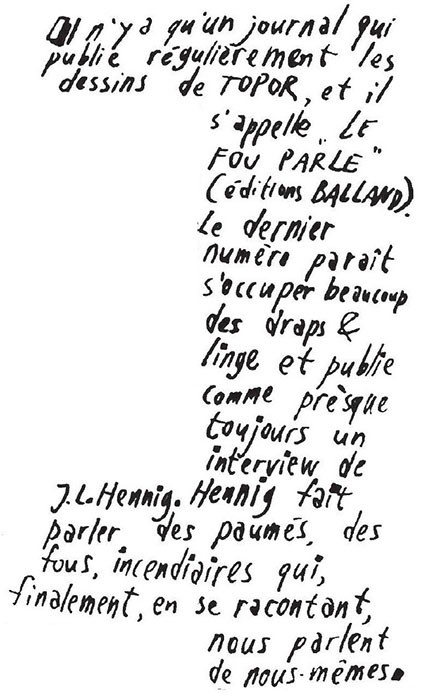 Il n'ya qu'un journal qui
publie régulièrement les
dessins de TOPOR, et il
s'appelle "LE
FOU PARLE"
(éditions BALLAND).
Le dernier
numéro paraît
s'occuper beaucoup
des draps &
linge et publie
comme prèsque
toujours un
interview de
J.L.Hennig. Hennig fait
parler des paumés, des
fous, incendiaires qui,
finalement, en se racontant,
nous parlent
de nous-mêmes.